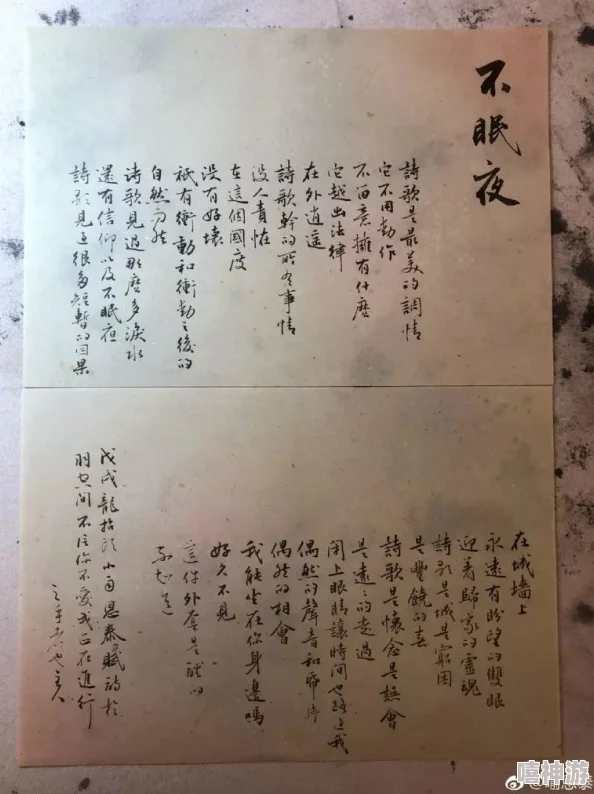 不眠夜
詩歌是最美的調情
它不用動作
不留意擁有什麼
它越出法律
在外逍遥
詩歌幹的所有事情
没人責怪
在這個國度
没有好壞
祇有衝動和衝動之後的
自然而然
诗歌見過那麼多淚水
還有信仰以及不眠夜
詩歌見過很多短暫的因果
在城墻上
永遠有盼望的雙眼
迎着歸家的靈魂
詩歌是城是窮困
是豐饒的春
詩歌是懷念是誤會
是遠遠的走過
閉上眼睛讓時間也路過我
偶然的聲音和帶
偶然的相會
我能坐在你身邊嗎
好久不見
這件外套是誰的
不知道
戊戌龍抬頭小雨恩泰賦詩於
羽空間不信你不愛我正在進行
之手
主人
嘻神游